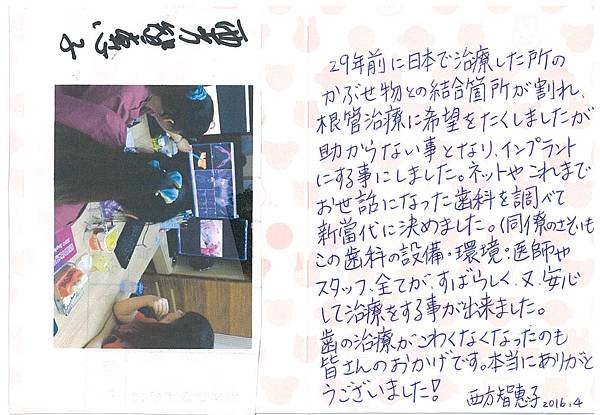 西方智恵子
29年前に日本で治療した所の
かぶせ物との結合箇所が割れ、
根管治療に希望をたくしましたが
助からない事となり、インプラント
にする事にしました。ネットやこれまで
おせ話になった歯科を調べて
新當代に決めました。(同僚のさそいも
この歯科の設備・環境・医師や
スタッフ、全てが、すばらしく、又、安心
して治療をする事が出来ました。
歯の治療がこわくなくなったのも
皆さんのおかげです。本当にありがと
うございました!
西方智恵子 2016.4